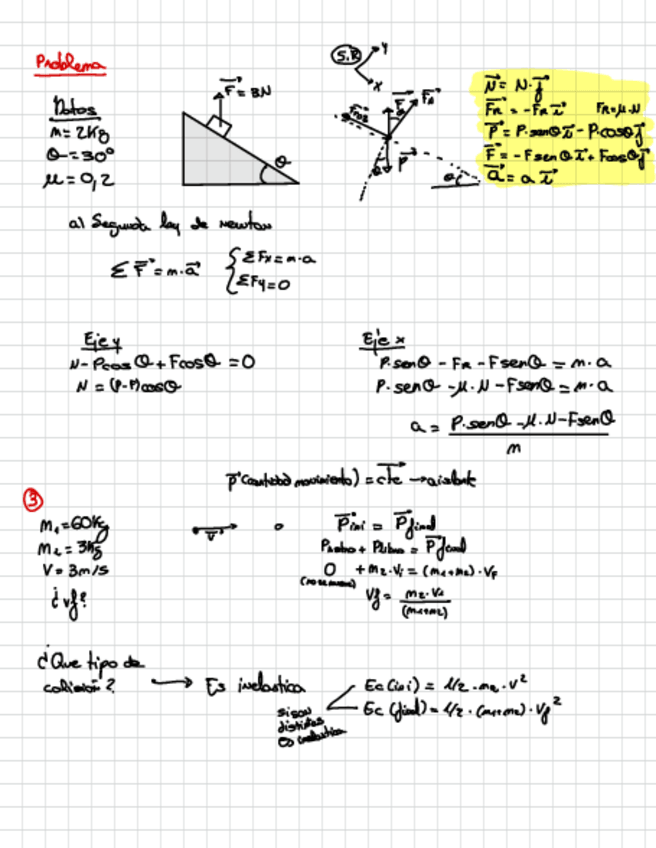 Problema
Datos
m = 2Kg
θ = 30°
μ = 0,2
F⃗ = 8N
θ
S.R
y
x
F⃗
P⃗
θ
N⃗ = N·j⃗
F⃗R = -FR i⃗ FR = μ·N
P⃗ = P·senθ i⃗ - P·cosθ j⃗
F⃗ = -F senθ i⃗ + F cosθ j⃗
a⃗ = a i⃗
a) Segunda ley de newton
Σ F⃗ = m·a⃗ { ΣFx = m·a
ΣFy = 0
Eje y
N - Pcosθ + Fcosθ = 0
N = (P-F)cosθ
Eje x
P·senθ - FR - Fsenθ = m·a
P·senθ - μ·N - Fsenθ = m·a
a = P·senθ - μ·N - Fsenθ
m
p⃗ (cantidad movimiento) = cte → aislante
3
m1 = 60Kg
m2 = 3Kg
V = 3m/s
¿vf?
v⃗
P⃗ini = P⃗final
+ = P⃗final
0 + m2·Vi = (m1+m2)·VF
Vf = m2·Vi
(m1+m2)
¿Que tipo de
colisión?
→ Es inelastica
si son
distintas
es inelastica
Ec(ini) = 1/2·m2·v²
Ec(final) = 1/2·(m1+m2)·Vf²